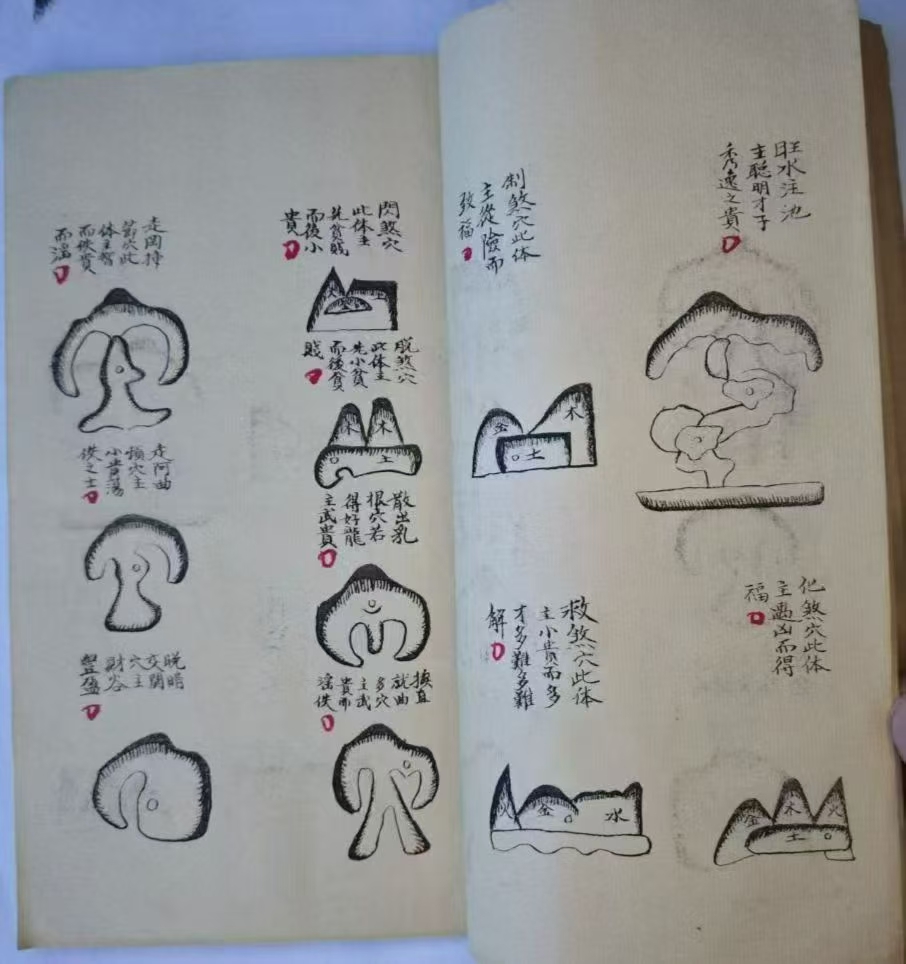 旺水注池
主聪明才子
秀逸之貴
化煞穴此体
主遇凶而得
福
金
木
火
土
制煞穴此体
主從險而
致福
金
木
土
救煞穴此体
主小貴而多
才多難多難
解
火
金
水
閃煞穴
此体主
先貧賤
而後小
貴
火
金
脱煞穴
此体主
先小貧
而後貧
賤
木
木
土
散出乳
根穴若
得好龍
主武貴
換直
就曲
多穴
主武
貴而
淫佚
走岡捧
節穴此
体主智
而佚貴
而滿
走河曲
頓穴主
小貴蕩
佚之士
脱晴
交關
穴主
財谷
豐盈